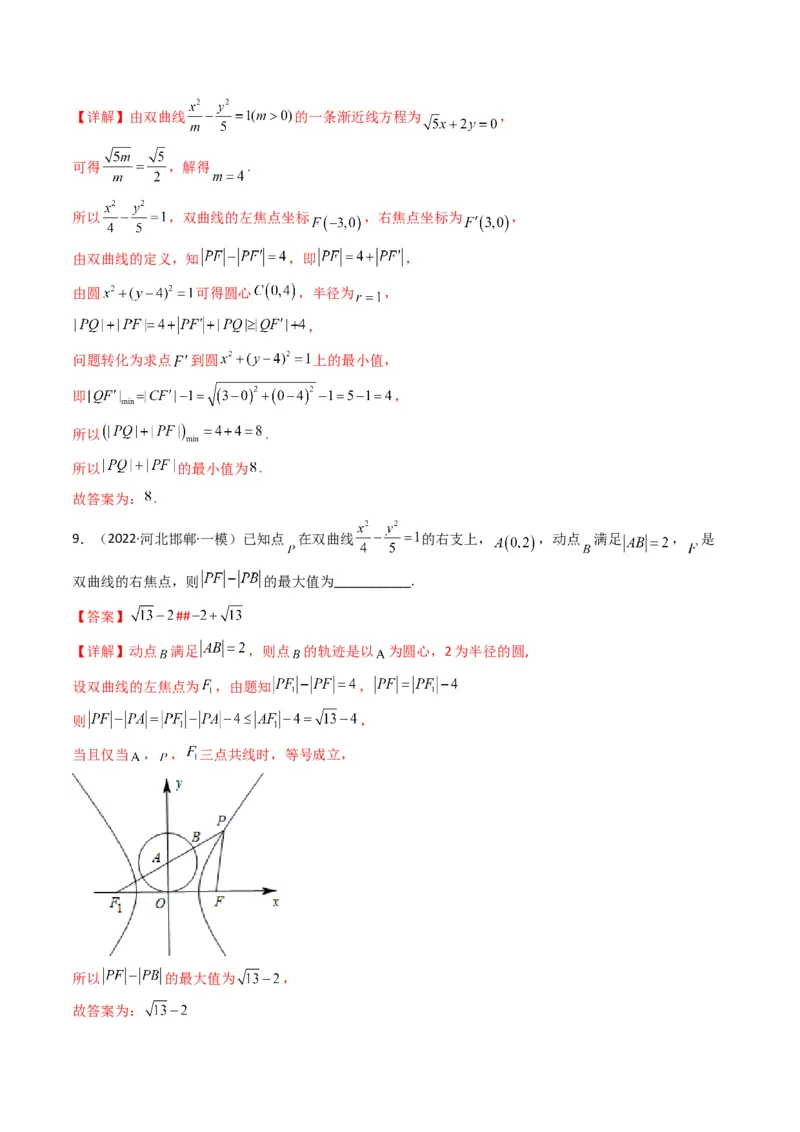 【详解】由双曲线 x²/m − y²/5 = 1(m > 0) 的一条渐近线方程为 √5x + 2y = 0，
可得 √(5m)/m = √5/2，解得 m = 4 .
所以 x²/4 − y²/5 = 1，双曲线的左焦点坐标 F(−3,0)，右焦点坐标为 F′(3,0)，
由双曲线的定义，知 |PF| − |PF′| = 4，即 |PF| = 4 + |PF′|，
由圆 x² + (y − 4)² = 1 可得圆心 C(0,4)，半径为 r = 1，
| PQ | + | PF | = 4 + |PF′| + | PQ | ≥ | QF′ | + 4，
问题转化为求点 F′ 到圆 x² + (y − 4)² = 1 上的最小值，
即 | QF′ |min = | CF′ | − 1 = √((3 − 0)² + (0 − 4)²) − 1 = 5 − 1 = 4，
所以 (| PQ | + | PF |)min = 4 + 4 = 8 .
所以 | PQ | + | PF 的最小值为 8 .
故答案为：8 .
9．（2022·河北邯郸·一模）已知点 P 在双曲线 x²/4 − y²/5 = 1 的右支上，A(0,2)，动点 B 满足 |AB| = 2，F 是
双曲线的右焦点，则 |PF| − |PB| 的最大值为___________.
【答案】√13 − 2##−2 + √13
【详解】动点 B 满足 |AB| = 2，则点 B 的轨迹是以 A 为圆心，2 为半径的圆，
设双曲线的左焦点为 F₁，由题知 |PF₁| − |PF| = 4，|PF| = |PF₁| − 4
则 |PF| − |PA| = |PF₁| − |PA| − 4 ≤ |AF₁| − 4 = √13 − 4，
当且仅当 A，P，F₁ 三点共线时，等号成立，
y
P
B
A
F₁ O F x
所以 |PF| − |PB| 的最大值为 √13 − 2，
故答案为：√13 − 2